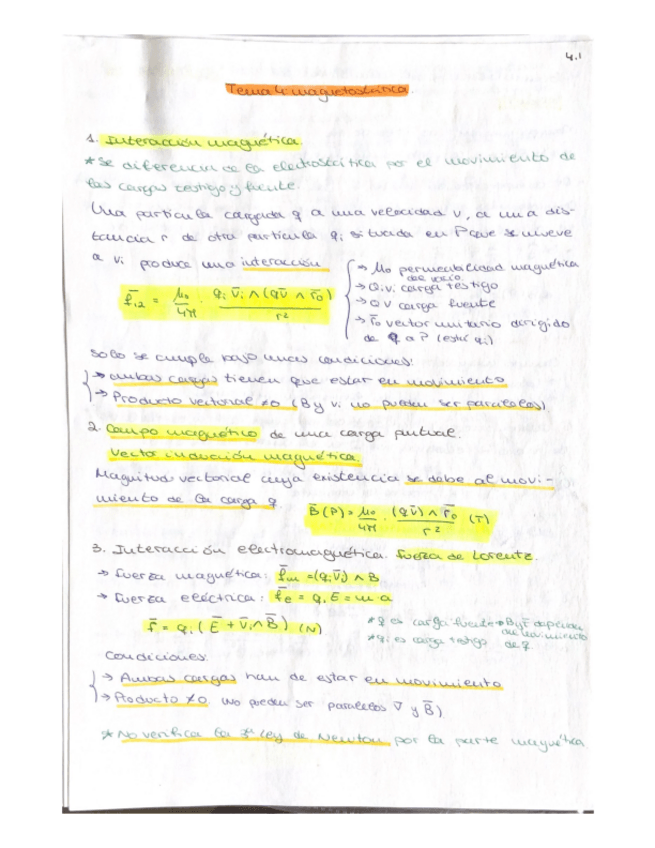 4.1
Tema 4: magnetostática.
1. Interacción magnética.
* Se diferencia de la electrostática por el movimiento de
las cargas testigo y fuente.
Una partícula cargada q a una velocidad v, a una dis-
tancia r de otra partícula qi situada en P que se mueve
a vi produce una interacción
→ μo permeabilidad magnética
de vacío.
→ Qivi carga testigo
→ QV carga fuente
→ r̄o vector unitario dirigido
de q a P (está qi)
f̄12 = μo/4π · qi v̄i ∧ (qv̄ ∧ r̄o) / r²
Solo se cumple bajo unas condiciones:
→ ambas cargas tienen que estar en movimiento
→ Producto vectorial ≠0 (B y vi no pueden ser paralelos)
2. Campo magnético de una carga puntual.
Vector inducción magnética.
Magnitud vectorial cuya existencia se debe al movi-
miento de la carga q.
B̄(P) = μo/4π · (qv̄) ∧ r̄o / r² (T)
3. Interacción electromagnética. Fuerza de Lorentz.
→ fuerza magnética: f̄m = (qi v̄i) ∧ B
→ fuerza eléctrica: f̄e = qi E = m a
f̄ = qi (Ē + v̄i ∧ B̄) (N)
* q es carga fuente → B y E dependen
del movimiento
* qi es carga testigo de q
Condiciones:
→ Ambas cargas han de estar en movimiento
→ Producto ≠0 (no pueden ser paralelos v̄ y B̄)
* No verifica la 3ª ley de Newton por la parte magnética